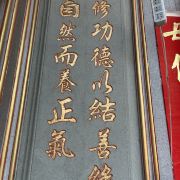 修功德以結善緣
自然而養正氣